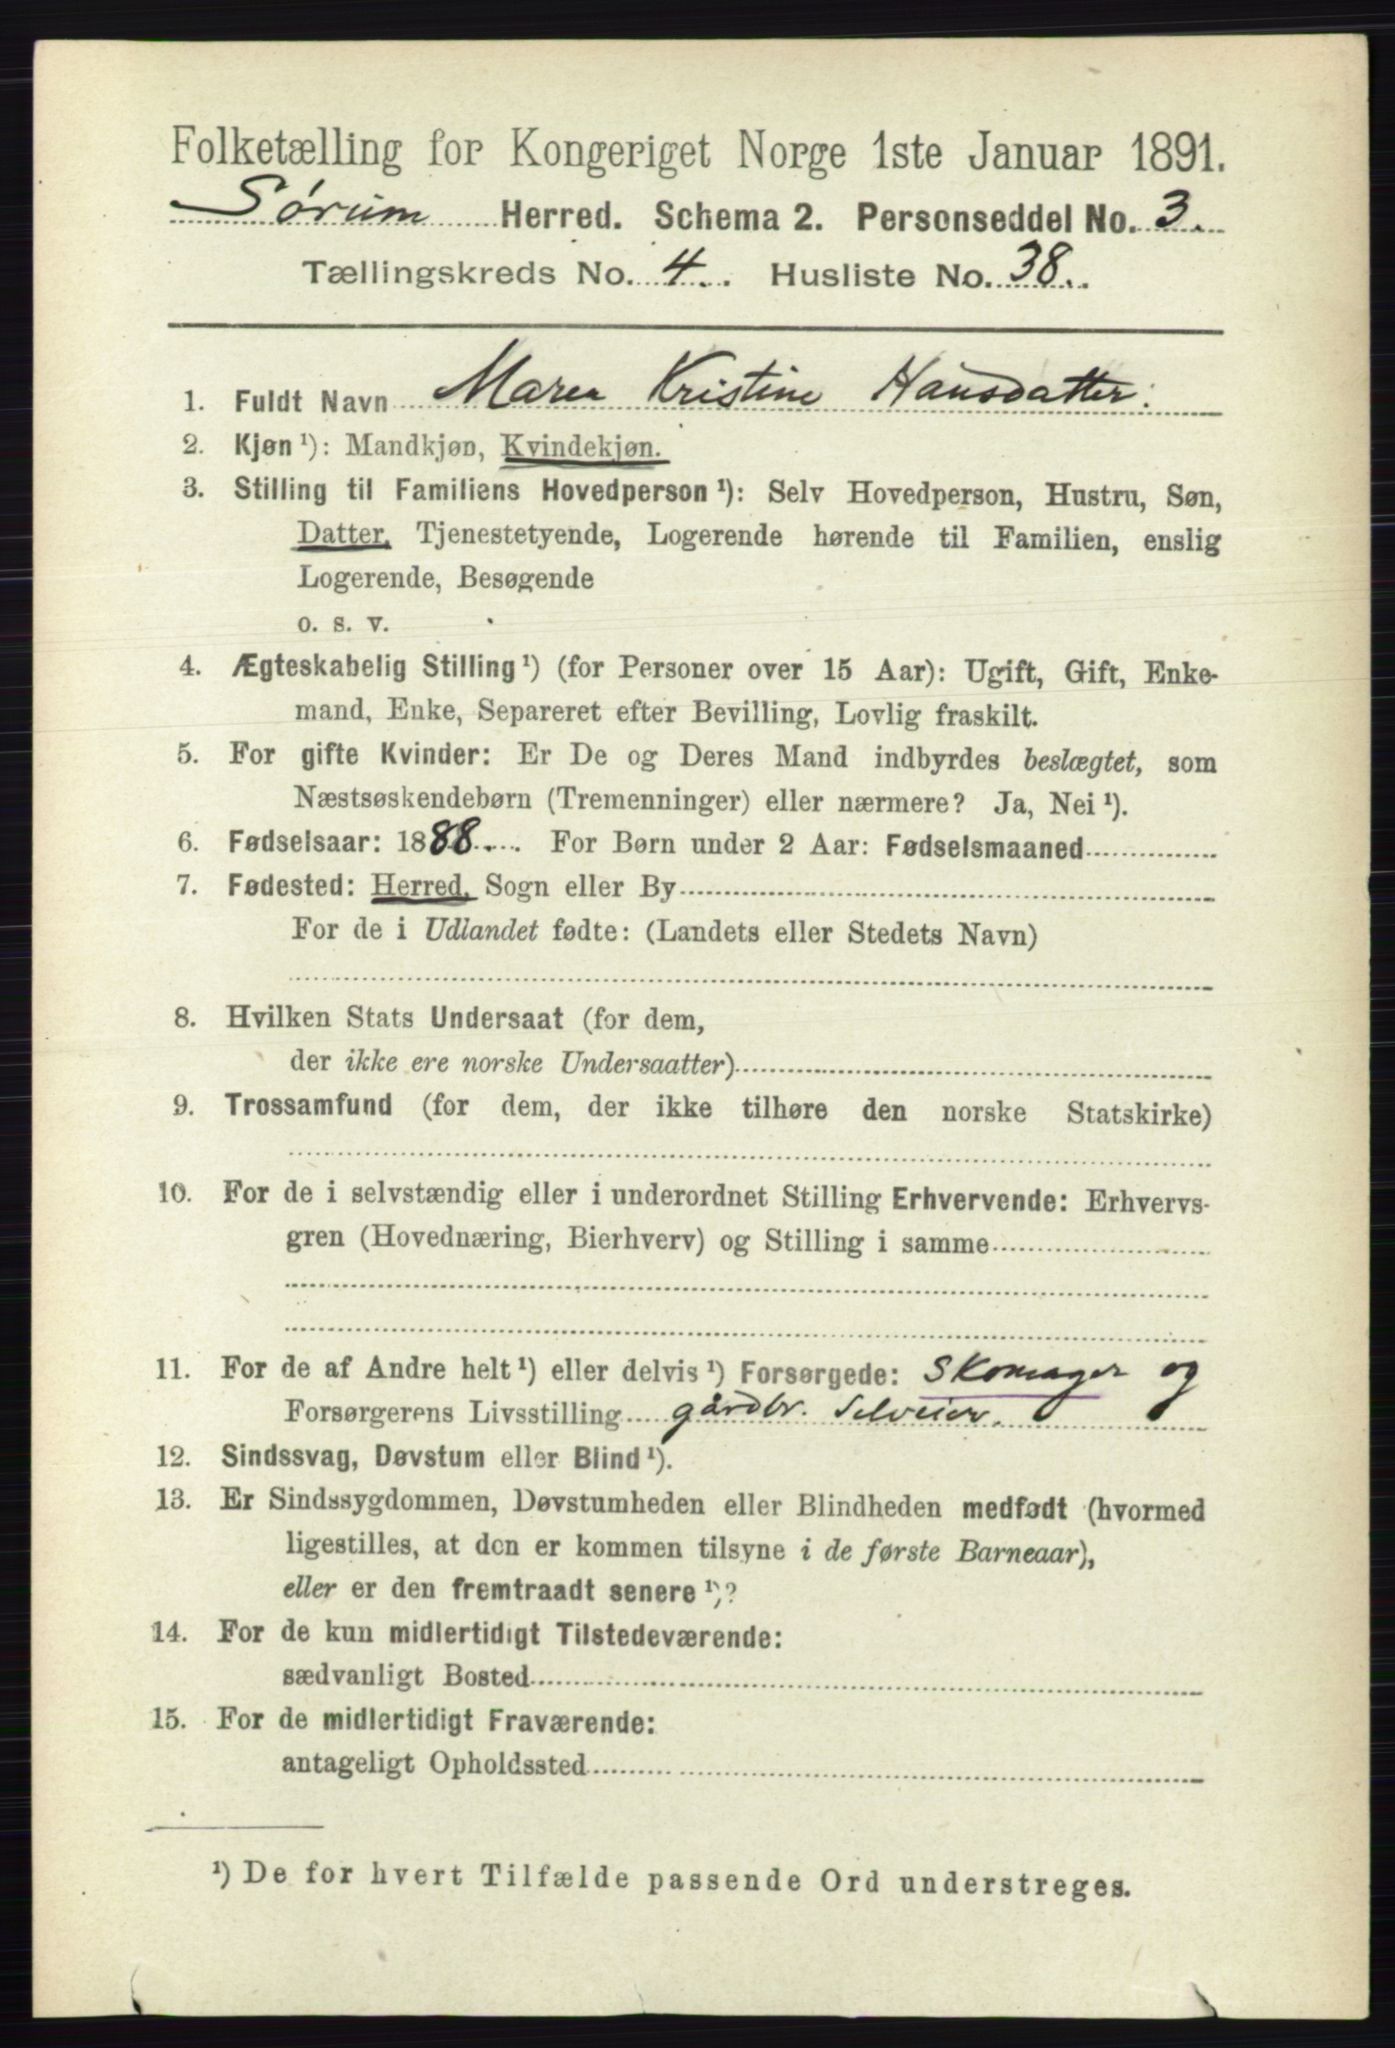 Folketælling for Kongeriget Norge 1ste Januar 1891.
Sørum Herred. Schema 2. Personseddel No. 3.
Tællingskreds No. 4. Husliste No. 38.
1. Fuldt Navn Maren Kristine Hansdatter.
2. Kjøn¹): Mandkjøn, Kvindekjøn.
3. Stilling til Familiens Hovedperson¹): Selv Hovedperson, Hustru, Søn,
Datter, Tjenestetyende, Logerende hørende til Familien, enslig
Logerende, Besøgende
o. s. v.
4. Ægteskabelig Stilling¹) (for Personer over 15 Aar): Ugift, Gift, Enke-
mand, Enke, Separeret efter Bevilling, Lovlig fraskilt.
5. For gifte Kvinder: Er De og Deres Mand indbyrdes beslægtet, som
Næstsøskendebørn (Tremenninger) eller nærmere? Ja, Nei¹).
6. Fødselsaar: 1888. For Børn under 2 Aar: Fødselsmaaned
7. Fødested: Herred, Sogn eller By
For de i Udlandet fødte: (Landets eller Stedets Navn)
8. Hvilken Stats Undersaat (for dem,
der ikke ere norske Undersaatter)
9. Trossamfund (for dem, der ikke tilhøre den norske Statskirke)
10. For de i selvstændig eller i underordnet Stilling Erhvervende: Erhvervs-
gren (Hovednæring, Bierhverv) og Stilling i samme
11. For de af Andre helt¹) eller delvis¹) Forsørgede: Skomager og
Forsørgerens Livsstilling gårdbr. Selveier.
12. Sindssvag, Døvstum eller Blind¹).
13. Er Sindssygdommen, Døvstumheden eller Blindheden medfødt (hvormed
ligestilles, at den er kommen tilsyne i de første Barneaar),
eller er den fremtraadt senere¹)?
14. For de kun midlertidigt Tilstedeværende:
sædvanligt Bosted
15. For de midlertidigt Fraværende:
antageligt Opholdssted
¹) De for hvert Tilfælde passende Ord understreges.